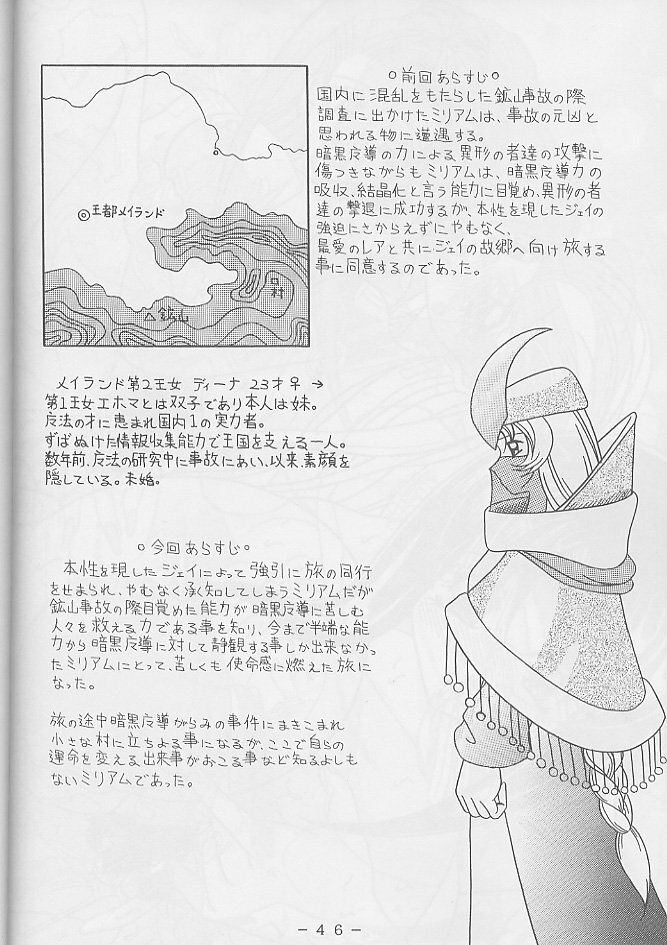 ○前回あらすじ○
国内に混乱をもたらした鉱山事故の際
調査に出かけたミリアムは、事故の元凶と
思われる物に遭遇する。
暗黒魔導の力による異形の者達の攻撃に
傷つきながらもミリアムは、暗黒魔導力の
吸収、結晶化と言う能力に目覚め、異形の者
達の撃退に成功するが、本性を現したジェイの
強迫にさからえずにやむなく、
最愛のレアと共にジェイの故郷へ向け旅する
事に同意するのであった。
◎王都メイランド
村
△鉱山
メイランド第2王女 ディーナ 23才♀→
第1王女エホマとは双子であり本人は妹。
魔法の才に恵まれ国内1の実力者。
ずばぬけた情報収集能力で王国を支える一人。
数年前、魔法の研究中に事故にあい、以来、素顔を
隠している。未婚。
○今回あらすじ○
本性を現したジェイによって強引に旅の同行
をせまられ、やむなく承知してしまうミリアムだが
鉱山事故の際目覚めた能力が暗黒魔導に苦しむ
人々を救える力である事を知り、今まで半端な能
力から暗黒魔導に対して静観する事しか出来なかっ
たミリアムにとって、苦しくも使命感に燃えた旅に
なった。
旅の途中暗黒魔導がらみの事件にまきこまれ
小さな村に立ちよる事になるが、ここで自らの
運命を変える出来事がおこる事など知るよしも
ないミリアムであった。
－46－